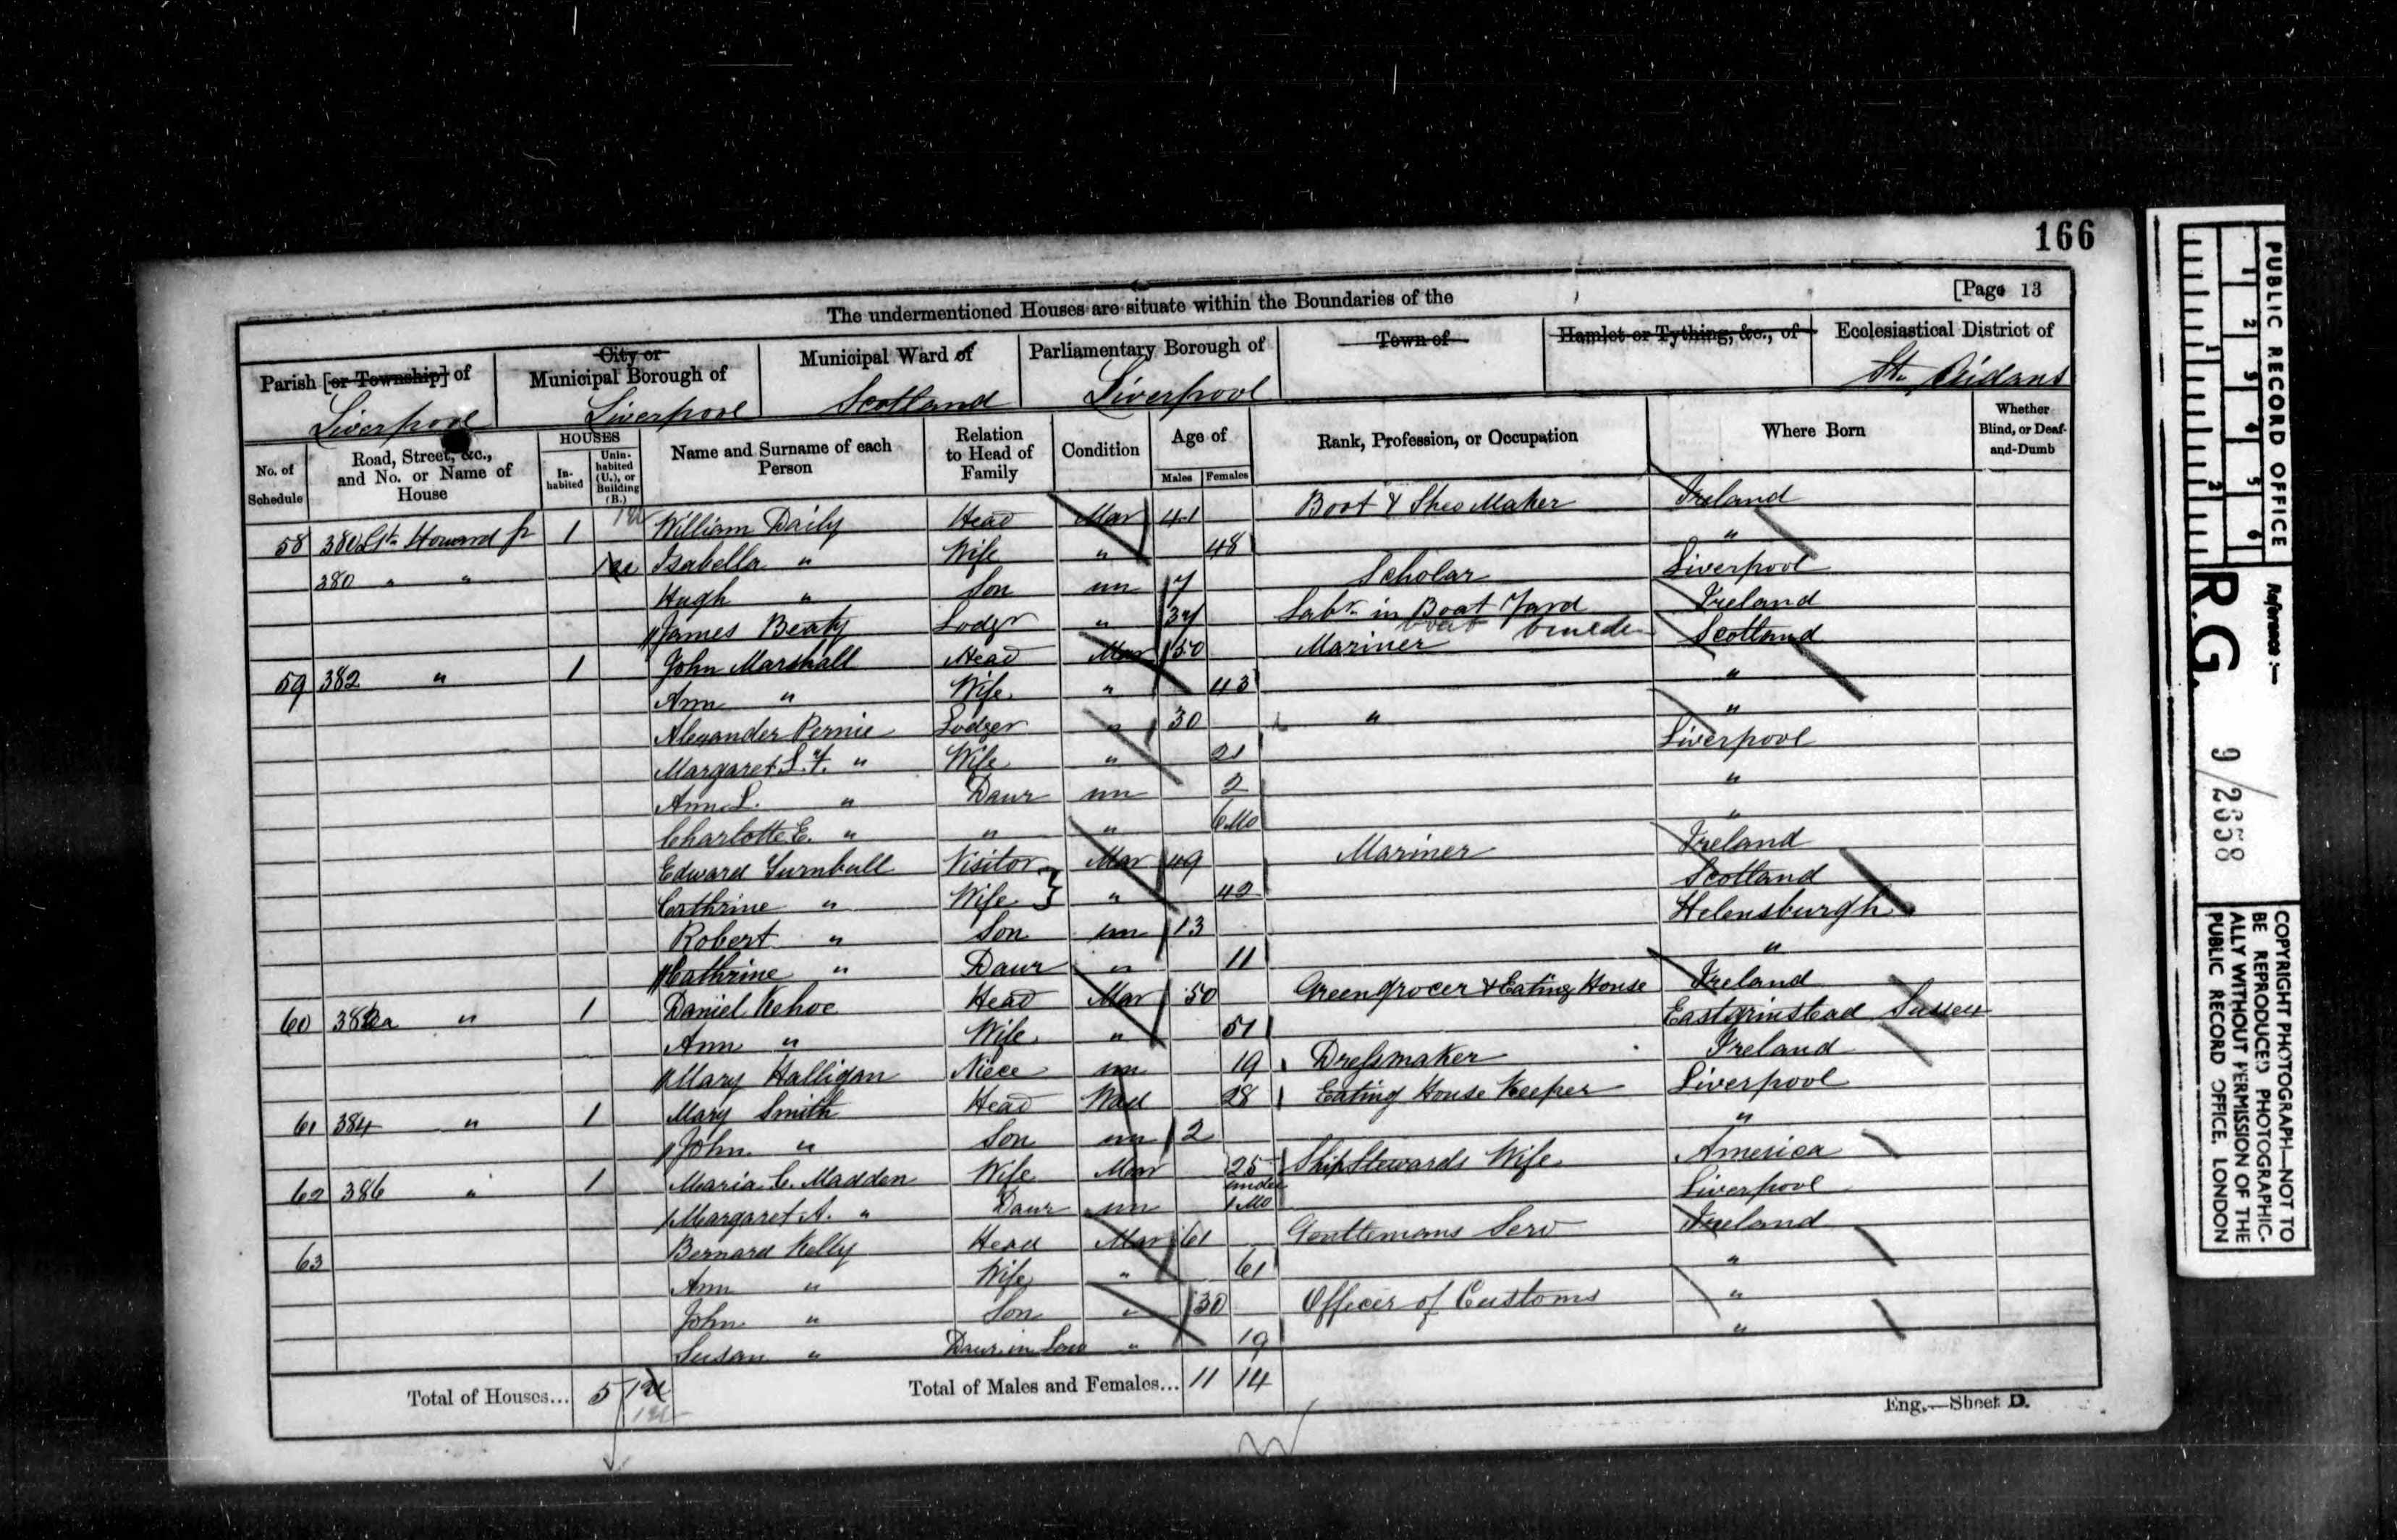 166
[Page 13
The undermentioned Houses are situate within the Boundaries of the
Parish [or Township] of
City or Municipal Borough of
Municipal Ward of
Parliamentary Borough of
Town of
Hamlet or Tything, &c., of
Ecclesiastical District of
Liverpool Liverpool Scotland Liverpool St. Aidans
No. of Schedule
Road, Street, &c., and No. or Name of House
HOUSES
In-habited
Unin-habited (U.), or Building (B.)
Name and Surname of each Person
Relation to Head of Family
Condition
Age of
Males Females
Rank, Profession, or Occupation
Where Born
Whether Blind, or Deaf-and-Dumb
58 380 Gt. Howard St 1 William Daily Head Mar 41 Boot & Shoe Maker Ireland
380 " " Isabella " Wife " 48 "
Hugh " Son un 7 Scholar Liverpool
James Beaty Lodgr " 37 Labr. in Boat Yard Ireland
59 382 " 1 John Marshall Head Mar 50 Mariner Scotland
Ann " Wife " 43 "
Alexander Pernie Lodger " 30 " "
Margaret " Wife " 21 Liverpool
Ann L. " Daur un 2 "
Charlotte E. " " " 6 Mo "
Edward Turnbull Visitor Mar 49 Mariner Ireland
Cathrine " Wife " 42 Scotland
Robert " Son un 13 Helensburgh
Cathrine " Daur " 11 "
60 382a " 1 Daniel Kehoe Head Mar 50 Greengrocer & Eating House Ireland
Ann " Wife " 51 Eastgrinstead Sussex
Mary Halligan Niece un 19 Dressmaker Ireland
61 384 " 1 Mary Smith Head Wid 28 Eating House Keeper Liverpool
John " Son un 2 "
62 386 " 1 Maria C. Madden Wife Mar 25 Ship Stewards Wife America
Margaret A. " Daur un under 1 Mo Liverpool
63 Bernard Kelly Head Mar 61 Gentlemans Serv Ireland
Ann " Wife " 61 "
John " Son " 30 Officer of Customs "
Susan " Daur in Law " 19 "
Total of Houses... 5 Total of Males and Females... 11 14
Eng.—Sheet D.
PUBLIC RECORD OFFICE
1 2 3 4 5 6
1 2
Reference :—
R.G. 9/2658
COPYRIGHT PHOTOGRAPH—NOT TO
BE REPRODUCED PHOTOGRAPHIC-
ALLY WITHOUT PERMISSION OF THE
PUBLIC RECORD OFFICE, LONDON